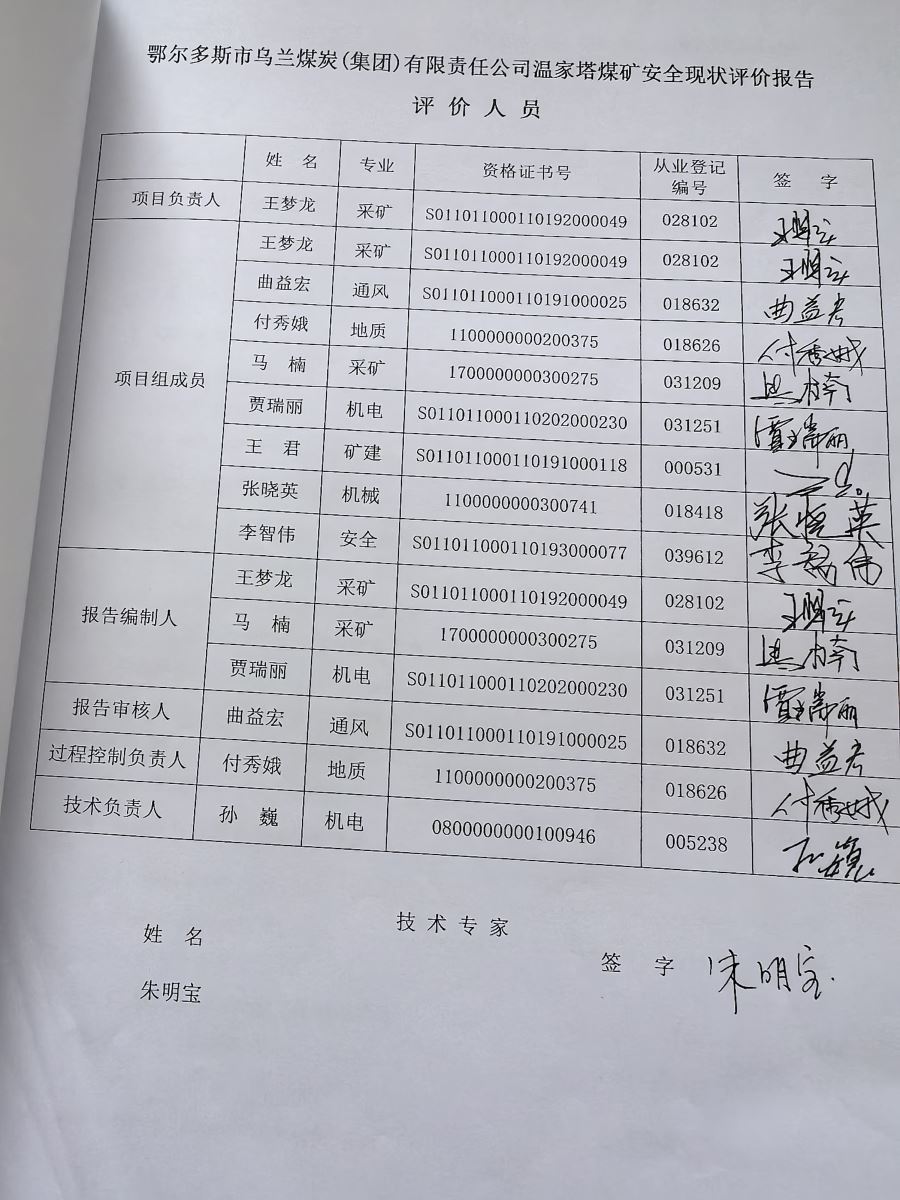 鄂尔多斯市乌兰煤炭(集团)有限责任公司温家塔煤矿安全现状评价报告
评 价 人 员
姓 名 专业 资格证书号 从业登记编号 签 字
项目负责人 王梦龙 采矿 S011011000110192000049 028102
项目组成员 王梦龙 采矿 S011011000110192000049 028102
曲益宏 通风 S011011000110191000025 018632 曲益宏
付秀娥 地质 1100000000200375 018626 付秀娥
马 楠 采矿 1700000000300275 031209 马楠
贾瑞丽 机电 S011011000110202000230 031251 贾瑞丽
王 君 矿建 S011011000110191000118 000531
张晓英 机械 1100000000300741 018418 张晓英
李智伟 安全 S011011000110193000077 039612 李智伟
报告编制人 王梦龙 采矿 S011011000110192000049 028102
马 楠 采矿 1700000000300275 031209 马楠
贾瑞丽 机电 S011011000110202000230 031251 贾瑞丽
报告审核人 曲益宏 通风 S011011000110191000025 018632 曲益宏
过程控制负责人 付秀娥 地质 1100000000200375 018626 付秀娥
技术负责人 孙 巍 机电 0800000000100946 005238 孙巍
技 术 专 家
姓 名 签 字 朱明宝
朱明宝